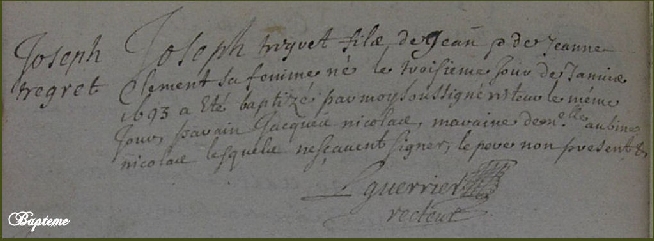 Joseph
tregret
Joseph triquet filz de Jean & de Jeanne
Clement sa femme né le troisieme Jour de Janvier
1693 a Eté baptizé par moy soussigné recteur le méme
Jour, parain Jacques nicolas, maraine dem.elle aubine
nicolas lesquels nesçauent signer, le pere non present &
L guerrier
recteur
Bapteme